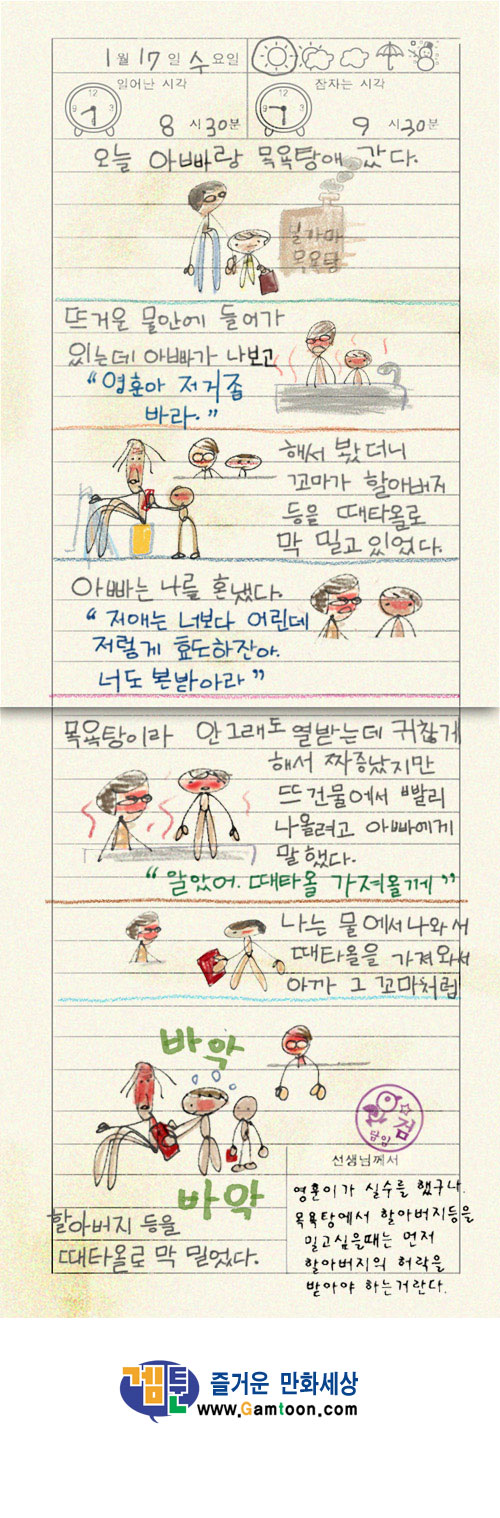 1월 17일 수요일
일어난 시각
잠자는 시각
12
3
6
9
12
3
6
9
8시 30분
9시 30분
오늘 아빠랑 목욕탕에 갔다.
불가마
목욕탕
뜨거운 물안에 들어가
있는데 아빠가 나보고
"영훈아 저거좀
바라."
해서 봤더니
꼬마가 할아버지
등을 때타올로
막 밀고 있었다.
아빠는 나를 혼냈다.
"저애는 너보다 어린데
저렇게 효도하잖아.
너도 본받아라"
목욕탕이라 안그래도 열받는데 귀찮게
해서 짜증났지만
뜨건물에서 빨리
나올려고 아빠에게
말했다.
"알았어. 때타올 가져올께"
나는 물에서나와서
때타올을 가져와서
아까 그 꼬마처럼
바악
바악
할아버지 등을
때타올로 막 밀었다.
담임
검
선생님께서
영훈이가 실수를 했구나.
목욕탕에서 할아버지등을
밀고싶을때는 먼저
할아버지의 허락을
받아야 하는거란다.
겜툰 즐거운 만화세상
www.Gamtoon.com